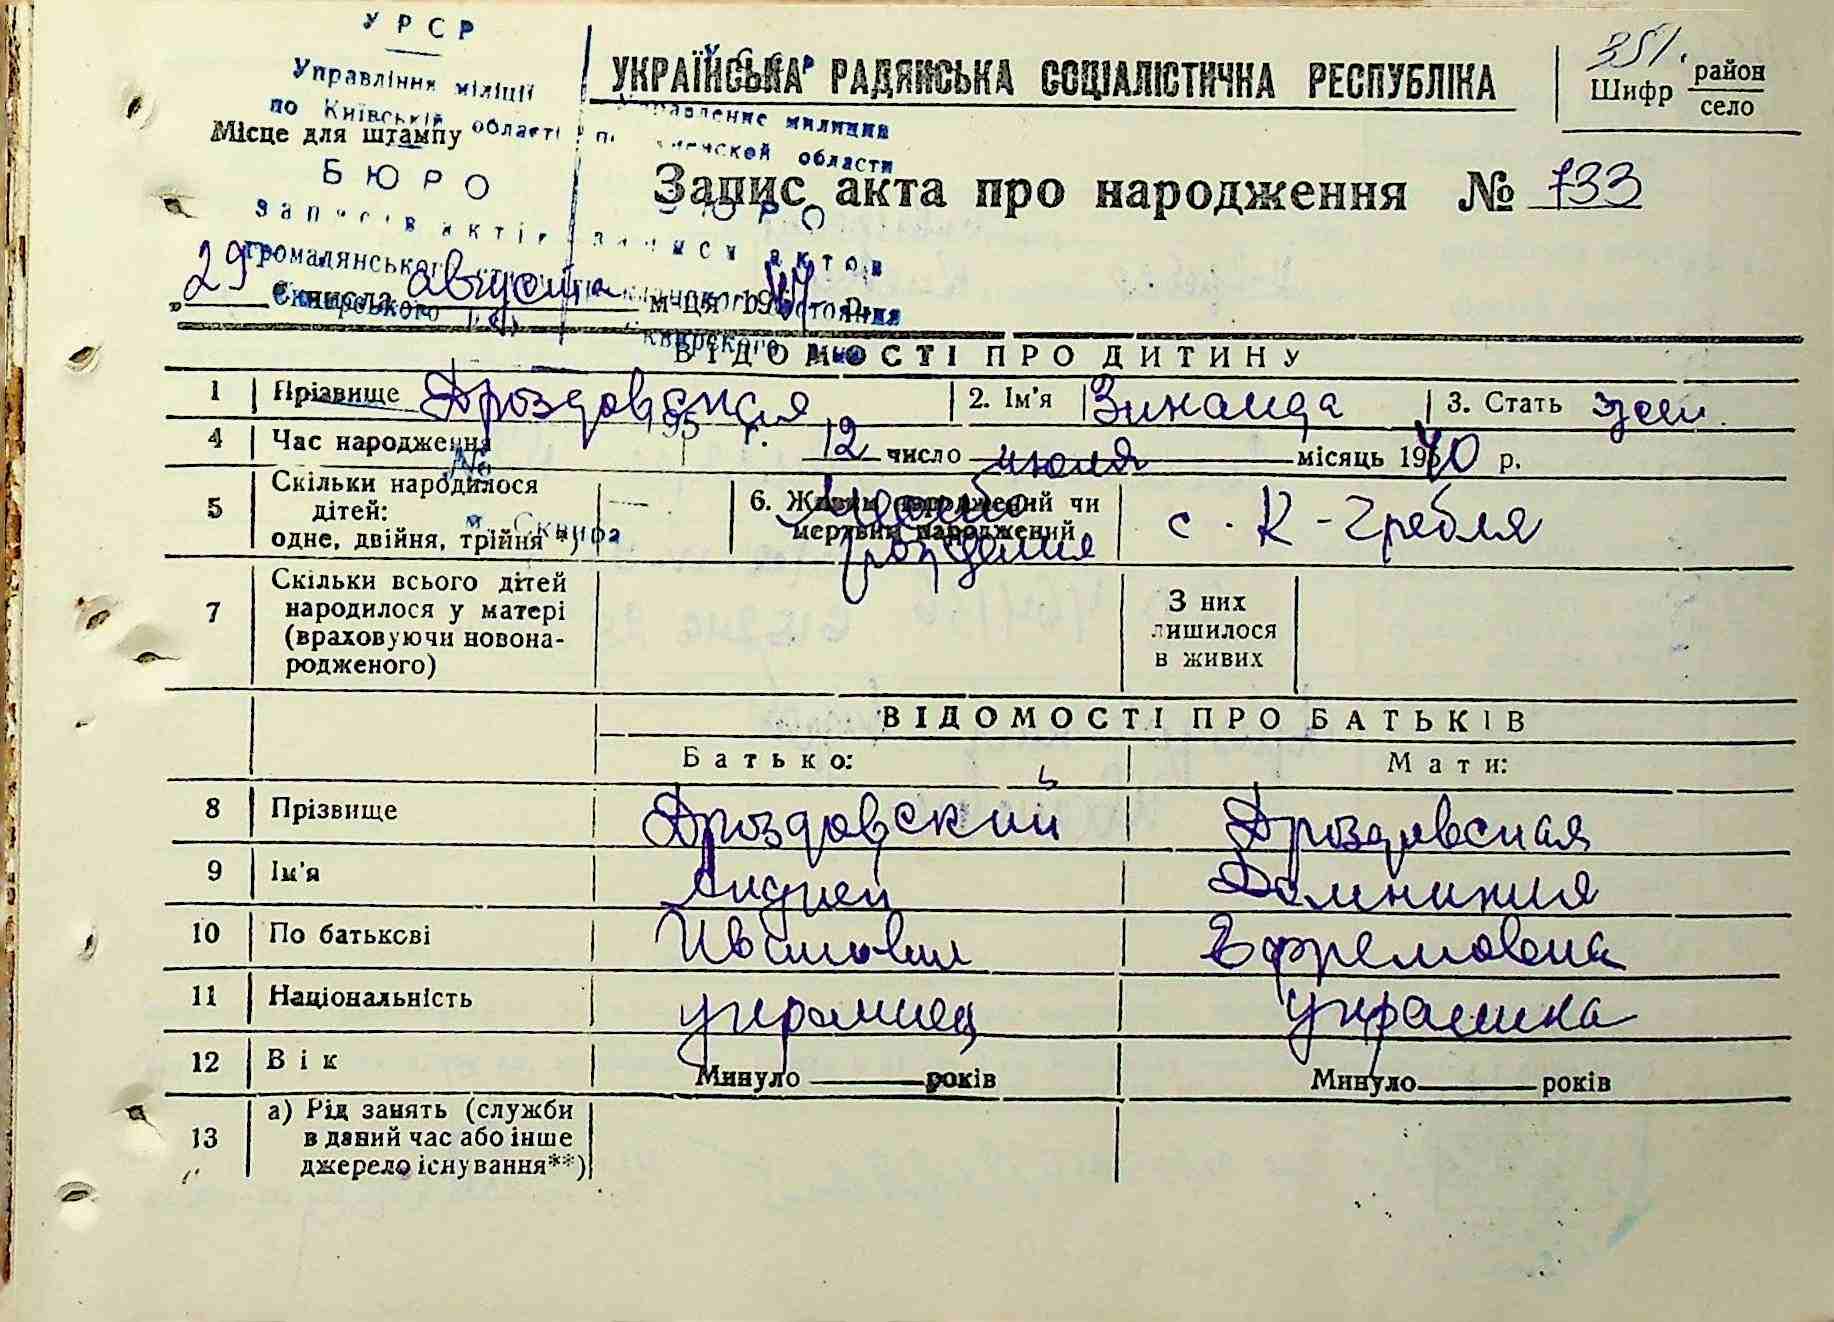 УРСР
Управління міліції
по Київській області
УКРАЇНСЬКА РАДЯНСЬКА СОЦІАЛІСТИЧНА РЕСПУБЛІКА
351.
Шифр район
село
милиции
области
Місце для штампу
БЮРО
Запис акта про народження № 733
записів актів
записи актов
громадянського
„ 29 " числа августа м-ця 19
Сквирского
ВІДОМОСТІ ПРО ДИТИНУ
1 Прізвище Дроздовская 2. Ім'я Зинаида 3. Стать жен
4 Час народження 12 число июля місяць 1940 р.
5 Скільки народилося дітей: одне, двійня, трійня *)
м. Сквира
6. Живим народжений чи мертвим народжений
Место рождения
с. К-Гребля
7 Скільки всього дітей народилося у матері (враховуючи новона-родженого)
З них лишилося в живих
ВІДОМОСТІ ПРО БАТЬКІВ
Батько: Мати:
8 Прізвище Дроздовский Дроздовская
9 Ім'я Андрей Домникия
10 По батькові Иванович Ефремовна
11 Національність украинец украинка
12 Вік Минуло років Минуло років
13 а) Рід занять (служби в даний час або інше джерело існування**)